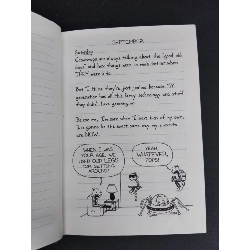 SEPTEMBER
Saturday
Grownups are always talking about the "good old
days" and how things were so much better when
THEY were kids.
But I think they're just jealous because MY
generation has all this fancy technology and stuff
they didn't have growing up.
Believe me, I'm sure when I have kids of my own,
I'm gonna be the exact same way my parents
are NOW.
WHEN I WAS
YOUR AGE, WE
HAD OUR LEGS
FOR GETTING
AROUND!
YEAH,
WHATEVER,
POPS!